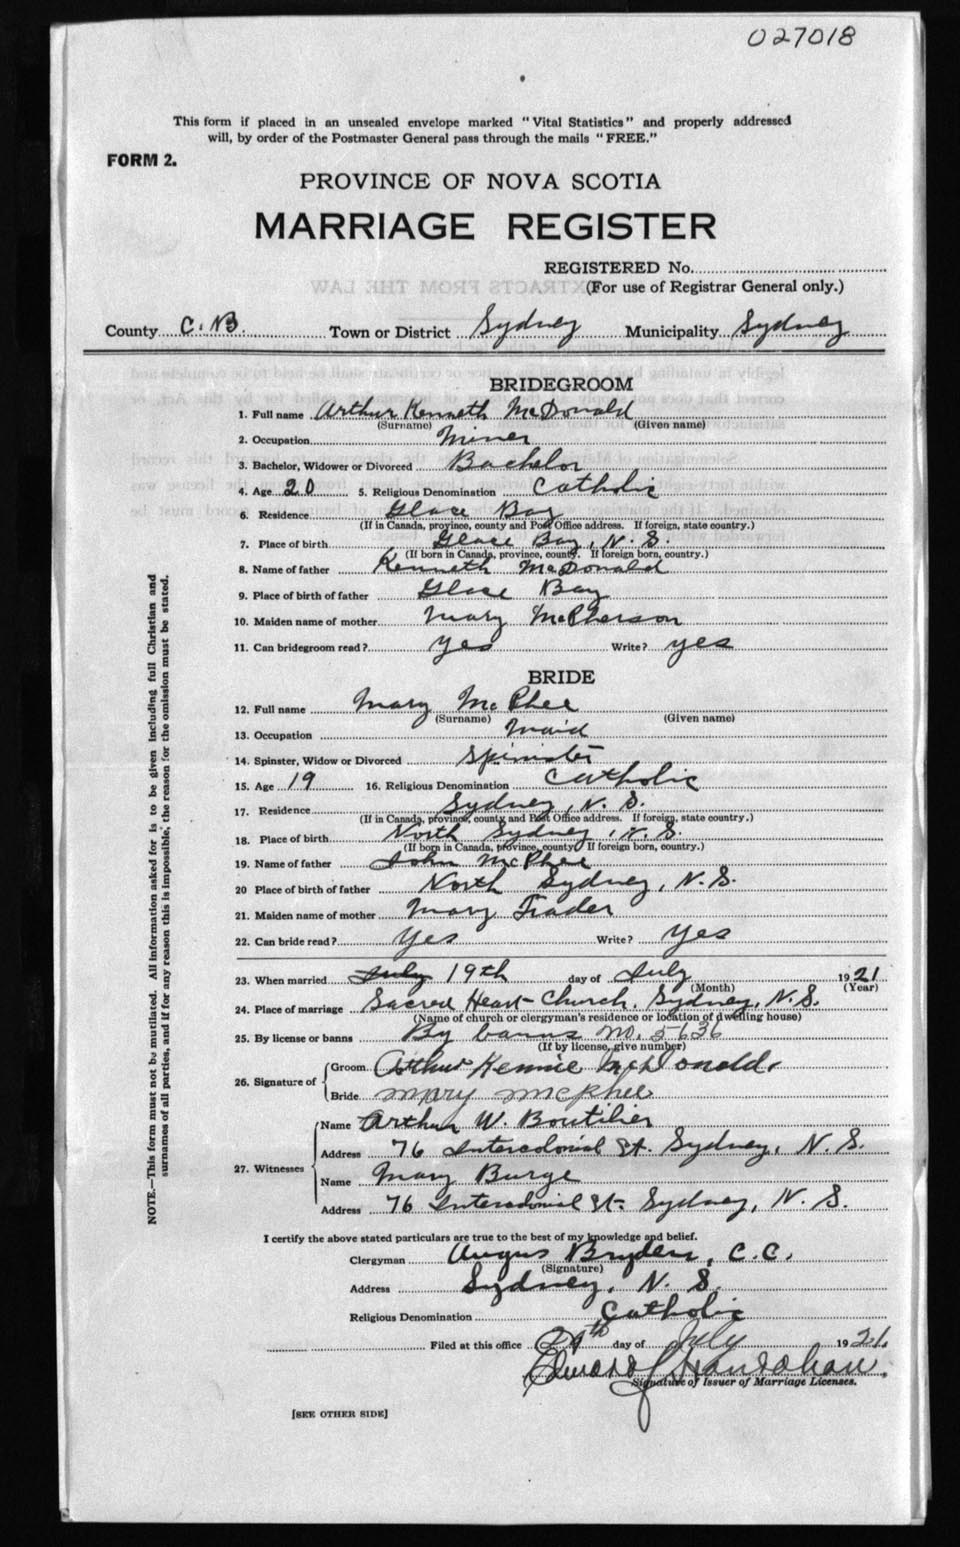 027018
This form if placed in an unsealed envelope marked "Vital Statistics" and properly addressed
will, by order of the Postmaster General pass through the mails "FREE."
FORM 2.
PROVINCE OF NOVA SCOTIA
MARRIAGE REGISTER
REGISTERED No.
(For use of Registrar General only.)
County C.B. Town or District Sydney Municipality Sydney
BRIDEGROOM
1. Full name Arthur Kenneth McDonald
(Surname) (Given name)
2. Occupation Miner
3. Bachelor, Widower or Divorced Bachelor
4. Age 20 5. Religious Denomination Catholic
6. Residence Glace Bay
(If in Canada, province, county and Post Office address. If foreign, state country.)
7. Place of birth Glace Bay, N.S.
(If born in Canada, province, county. If foreign born, country.)
8. Name of father Kenneth McDonald
9. Place of birth of father Glace Bay
10. Maiden name of mother Mary McPherson
11. Can bridegroom read? yes Write? yes
BRIDE
12. Full name Mary McPhee
(Surname) (Given name)
13. Occupation Maid
14. Spinster, Widow or Divorced Spinster
15. Age 19 16. Religious Denomination Catholic
17. Residence Sydney, N.S.
(If in Canada, province, county and Post Office address. If foreign, state country.)
18. Place of birth North Sydney, N.S.
(If born in Canada, province, county If foreign born, country.)
19. Name of father John McPhee
20 Place of birth of father North Sydney, N.S.
21. Maiden name of mother Mary Trader
22. Can bride read? Yes Write? Yes
23. When married July 19th day of July 1921
(Month) (Year)
24. Place of marriage Sacred Heart Church, Sydney, N.S.
(Name of church or clergyman's residence or location of dwelling house)
25. By license or banns By banns No. 5636
(If by license, give number)
26. Signature of Groom Arthur Kennie McDonald
Bride mary mcphee
27. Witnesses Name Arthur W. Boutilier
Address 76 Intercolonial St. Sydney, N.S.
Name Mary Burge
Address 76 Intercolonial St. Sydney, N.S.
I certify the above stated particulars are true to the best of my knowledge and belief.
Clergyman Angus Bryden, C.C.
(Signature)
Address Sydney, N.S.
Religious Denomination Catholic
Filed at this office day of July 1921
Signature of Issuer of Marriage Licenses.
[SEE OTHER SIDE]
NOTE.—This form must not be mutilated. All information asked for is to be given including full Christian and
surnames of all parties, and if for any reason this is impossible, the reason for the omission must be stated.